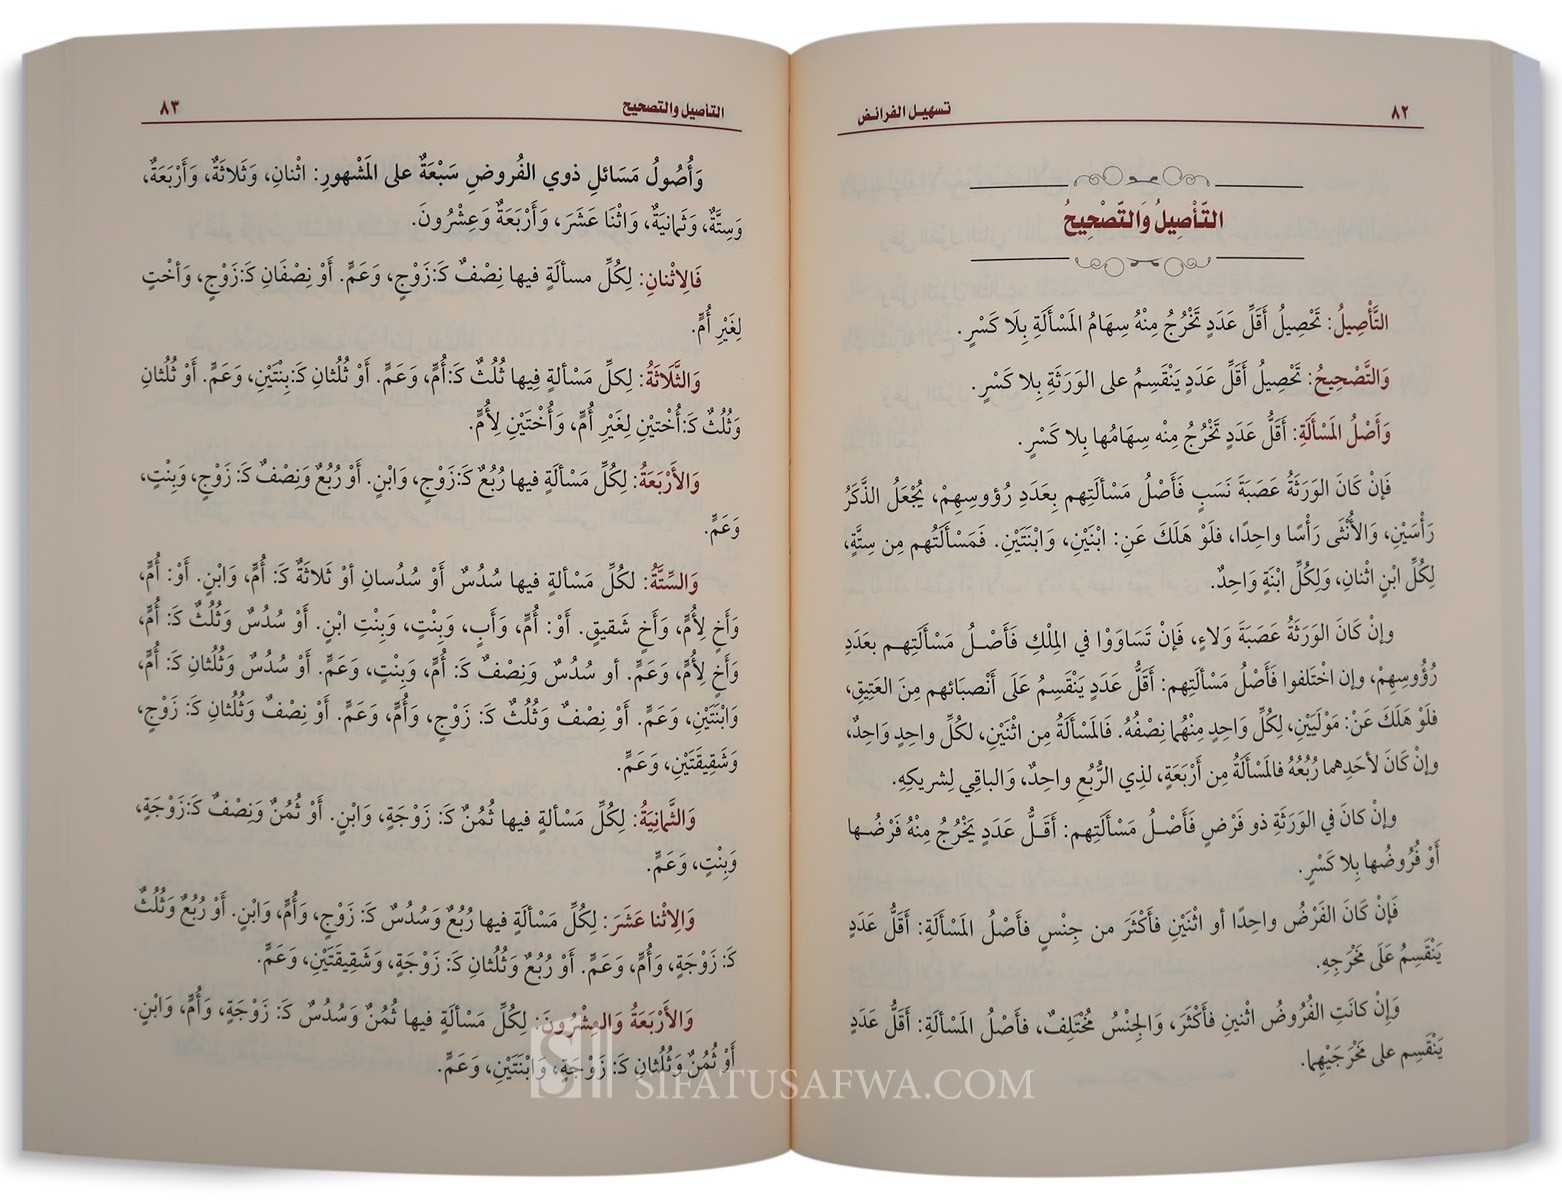 ٨٢ تسهيل الفرائض
التَّأْصِيلُ وَالتَّصْحِيحُ
التَّأْصِيلُ: تَحْصِيلُ أَقَلِّ عَدَدٍ تَخْرُجُ مِنْهُ سِهَامُ المَسْأَلَةِ بِلَا كَسْرٍ.
وَالتَّصْحِيحُ: تَحْصِيلُ أَقَلِّ عَدَدٍ يَنْقَسِمُ على الوَرَثَةِ بِلا كَسْرٍ.
وَأَصْلُ المَسْأَلَةِ: أَقَلُّ عَدَدٍ تَخْرُجُ مِنْه سِهَامُها بِلا كَسْرٍ.
فَإنْ كَانَ الوَرَثَةُ عَصَبَةَ نَسَبٍ فَأَصْلُ مَسْألَتِهم بِعَدَدِ رُؤوسِهِمْ، يُجْعَلُ الذَّكَرُ
رَأْسَيْنِ، وَالأُنْثَى رَأْسًا واحِدًا، فلَوْ هَلَكَ عَنِ: ابْنَيْنِ، وَابْنَتَيْنِ. فَمَسْأَلَتُهم مِن سِتَّةٍ،
لِكُلِّ ابْنٍ اثْنانِ، وَلِكُلِّ ابْنَةٍ وَاحِدٌ.
وإنْ كَانَ الوَرَثَةُ عَصَبَةَ وَلاءٍ، فَإنْ تَسَاوَوْا في المِلْكِ فَأَصْلُ مَسْأَلَتِهِم بعَدَدِ
رُؤُوسِهِمْ، وإن اخْتَلَفوا فَأَصْلُ مَسْأَلَتِهم: أَقَلُّ عَدَدٍ يَنْقَسِمُ عَلَى أَنْصبَائهم مِنَ العَتِيقِ،
فلَوْ هَلَكَ عَنْ: مَوْلَيَيْنِ، لِكُلِّ وَاحِدٍ مِنْهُما نِصْفُهُ. فَالمَسْأَلَةُ مِن اثْنَيْنِ، لكُلِّ واحِدٍ وَاحِدٌ،
وإن كَانَ لأَحَدِهما رُبُعُهُ فالمَسْأَلَةُ مِن أَرْبَعَةٍ، لذِي الرُّبُعِ واحِدٌ، وَالباقِي لِشريكِهِ.
وإنْ كانَ في الوَرَثَةِ ذو فَرْضٍ فَأَصْلُ مَسْأَلَتِهم: أَقَلُّ عَدَدٍ يَخْرُجُ مِنْهُ فَرْضُها
أَوْ فُرُوضُها بِلا كَسْرٍ.
فَإنْ كَانَ الفَرْضُ واحِدًا أو اثْنَيْنِ فأَكْثَرَ من جِنْسٍ فأَصْلُ المَسْأَلَةِ: أَقَلُّ عَدَدٍ
يَنْقَسِمُ عَلَى مَخْرَجِهِ.
وَإنْ كانَتِ الفُرُوضُ اثْنينِ فأَكْثَرَ، وَالجِنْسُ مُخْتَلِفٌ، فأَصْلُ المَسْأَلَةِ: أَقَلُّ عَدَدٍ
يَنْقَسِم على مَخْرَجَيْهِما.
التأصيل والتصحيح ٨٣
وَأُصُولُ مَسَائلِ ذوي الفُروضِ سَبْعَةٌ على المَشْهورِ: اثْنانِ، وَثَلاثَةٌ، وَأَرْبَعَةٌ،
وَسِتَّةٌ، وَثَمانيَةٌ، وَاثْنَا عَشَرَ، وَأَرْبَعَةٌ وَعِشْرُونَ.
فَالِاثْنانِ: لِكُلِّ مسألَةٍ فيها نِصْفٌ كَـ:زَوْجٍ، وَعَمٍّ. أَوْ نِصْفَانِ كَـ:زَوْجٍ، وَأُخْتٍ
لِغَيْرِ أُمٍّ.
وَالثَّلَاثَةُ: لِكلِّ مَسْألةٍ فِيها ثُلُثٌ كَـ:أُمٍّ، وَعَمٍّ. أَوْ ثُلُثانِ كَـ:بِنْتَيْنِ، وَعَمٍّ. أَوْ ثُلُثانِ
وَثُلُثٌ كَـ:أُخْتيْنِ لِغَيْرِ أُمٍّ، وَأُخْتَيْنِ لِأُمٍّ.
وَالأَرْبَعَةُ: لِكُلِّ مَسْأَلَةٍ فيها رُبُعٌ كَـ:زَوْجٍ، وَابْنٍ. أَوْ رُبُعٌ وَنِصْفٌ كَـ: زَوْجٍ، وَبِنْتٍ،
وَعَمٍّ.
وَالسِّتَّةُ: لكُلِّ مَسْألَةٍ فيها سُدُسٌ أَوْ سُدُسانِ أَوْ ثَلاثَةٌ كَـ: أُمٍّ، وَابْنٍ. أَوْ: أُمٍّ،
وَأَخٍ لِأُمٍّ، وَأَخٍ شَقيقٍ. أَوْ: أُمٍّ، وَأَبٍ، وَبِنْتٍ، وَبِنْتِ ابْنٍ. أَوْ سُدُسٌ وَثُلُثٌ كَـ: أُمٍّ،
وَأَخٍ لِأُمٍّ، وَعَمٍّ. أو سُدُسٌ وَنِصْفٌ كَـ: أُمٍّ، وَبِنْتٍ، وَعَمٍّ. أَوْ سُدُسٌ وَثُلُثانِ كَـ: أُمٍّ،
وَابْنَتَيْنِ، وَعَمٍّ. أَوْ نِصْفٌ وَثُلُثٌ كَـ: زَوْجٍ، وَأُمٍّ، وَعَمٍّ. أَوْ نِصْفٌ وَثُلُثانِ كَـ: زَوْجٍ،
وَشَقِيقَتَيْنِ، وَعَمٍّ.
وَالثَّمانِيَةُ: لِكُلِّ مَسْألةٍ فيها ثُمُنٌ كَـ: زَوْجَةٍ، وَابْنٍ. أَوْ ثُمُنٌ وَنِصْفٌ كَـ:زَوْجَةٍ،
وَبِنْتٍ، وَعَمٍّ.
وَالِاثْنا عَشَرَ: لِكُلِّ مَسْألَةٍ فيها رُبُعٌ وَسُدُسٌ كَـ: زَوْجٍ، وَأُمٍّ، وَابْنٍ. أَوْ رُبُعٌ وَثُلُثٌ
كَـ: زَوْجَةٍ، وَأُمٍّ، وَعَمٍّ. أَوْ رُبُعٌ وَثُلُثانِ كَـ: زَوْجَةٍ، وَشَقِيقَتَيْنِ، وَعَمٍّ.
وَالأَرْبَعَةُ وَالعِشْرُونَ: لِكُلِّ مَسْألَةٍ فيها ثُمُنٌ وَسُدُسٌ كَـ: زَوْجَةٍ، وَأُمٍّ، وَابْنٍ.
أَوْ ثُمُنٌ وَثُلُثانِ كَـ: زَوْجَةٍ، وَابْنَتَيْنِ، وَعَمٍّ.
SIFATUSAFWA.COM